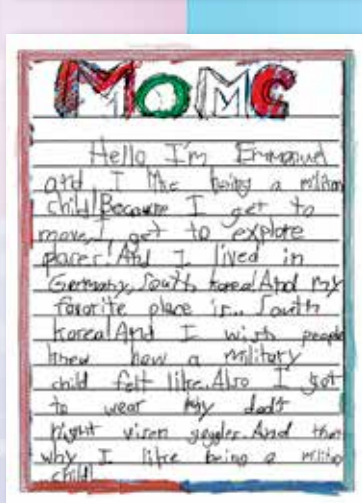 MOMC
Hello I'm Emmanuel
and I like being a militan
child! Because I get to
move, I get to explore
places! And I lived in
Germany, South korea! And my
favorite place is... South
korea! And I wish people
knew how a military
child felt like. Also I got
to wear my dad's
night vison goggles. And that
why I like being a militan
child!